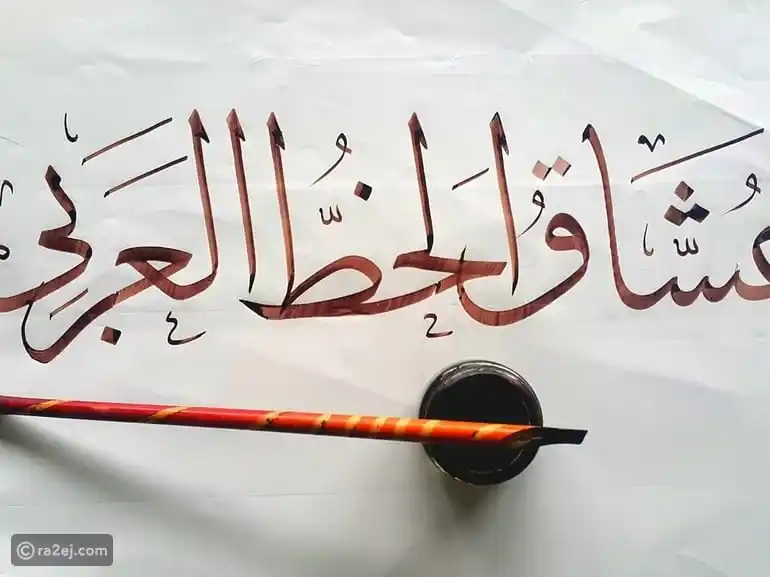 عُشَّاقُ الخَطِّ العَرَبِي
©ra2ej.com